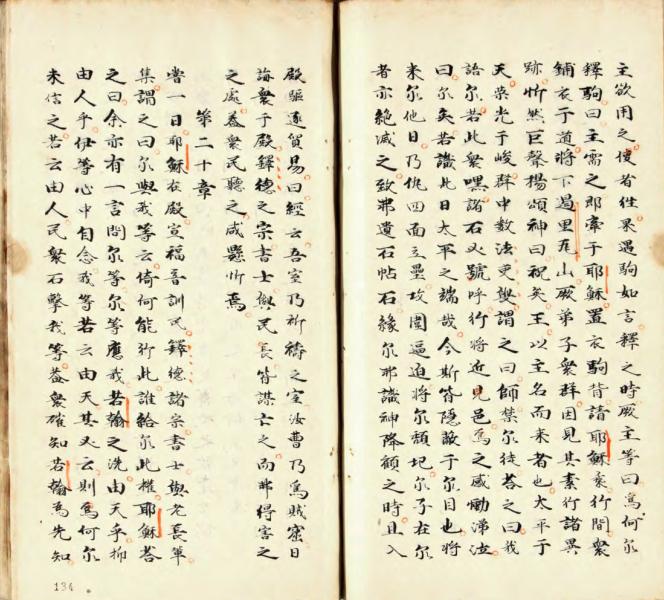 主欲用之使者徃果遇駒如言釋之時厥主等曰爲何尔
釋駒曰主需之即牽于耶穌置衣駒背請耶穌乘行間衆
鋪衣于道將下過里瓦山厥弟子衆群因見其素行諸異
跡忻然巨聲揚頌神曰祝矣王以主名而来者也太平于
天榮光于峻群中数法吏輿謂之曰師禁尔徒荅之曰我
語尔若此衆嘿諸石必號呼行將近見邑爲之感慟涕泣
曰尔矣若識此日太平之端哉今斯皆隱蔽于尔目也將
来尔他日乃仇四面立壘攻圍逼迫將尔頹圮尔子在尔
者亦絶滅之致弗遺石帖石緣尔弗識神降顧之時且入
殿驅逐貿易曰經云吾室乃祈禱之室汝曹乃爲賊窟日
誨衆于殿鐸德之宗書士與民長皆謀亡之而弗得害之
之處葢衆民聽之咸懸忻焉
第二十章
甞一日耶穌在殿宣福音訓民鐸德諸宗書士與老長軍
集謂之曰尔與我等云倚何能行此誰給尔此權耶穌荅
之曰余亦有一言問尔等尔等應我若翰之洗由天乎抑
由人乎伊等心中自念我等若云由天其必云則爲何尔
未信之若云由人民衆石擊我等葢衆確知若翰爲先知
134